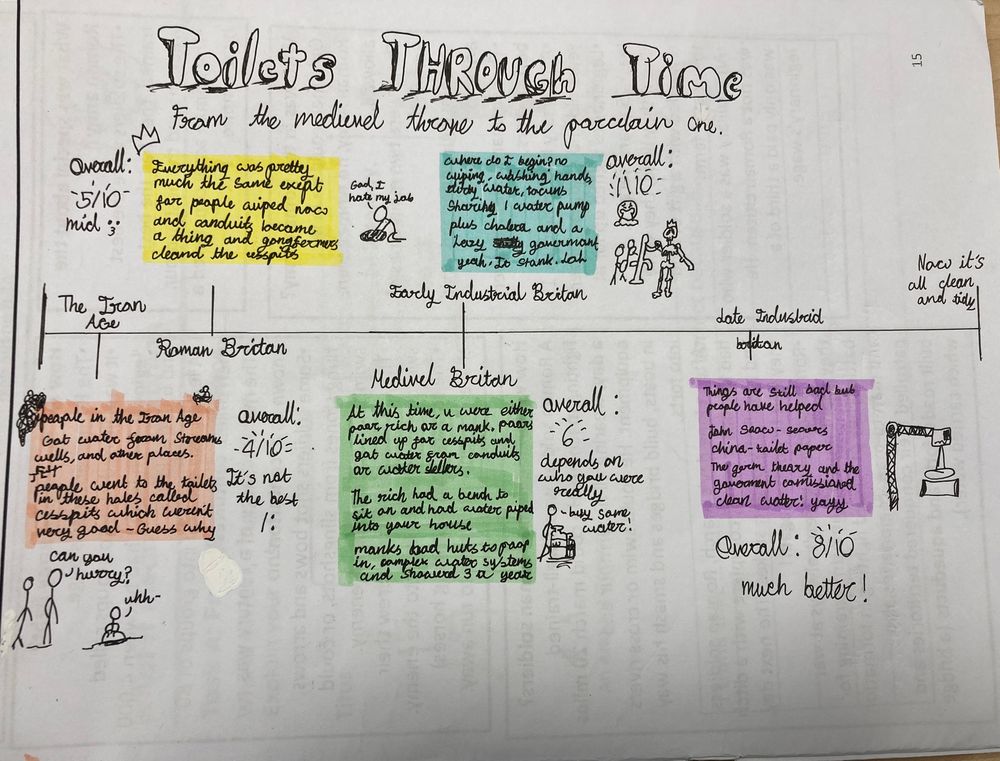 Toilets THROUGH Time
From the medievel throne to the porcelain one.
15
Overall:
5/10
mid
Everything was pretty
much the same exept
for people wiped now
and conduits became
a thing and gongfermers
cleand the cesspits
God, I
hate my job
where do I begin? no
wiping, washing hands,
dirty water, towns
Sharing 1 water pump
plus cholera and a
lazy government
yeah. It stank. Lah
overall:
1/10
Now it's
all clean
and tidy
The Iron
Age
Roman Britan
Early Industrial Britan
Late Industrial
britian
people in the Iron Age
Got water from Streams
wells, and other places.
people went to the toilets
in these holes called
cesspits which werent
very good - Guess why
overall:
4/10
It's not
the best
can you
hurry?
uhh-
Medivel Britan
At this time, u were either
poor, rich or a monk. poors
lined up for cesspits and
got water from conduits
or water sellers.
The rich had a bench to
sit on and had water piped
into your house
monks had huts to poop
in, complex water systems
and showerd 3 a year
overall:
6
depends on
who you were
really
- buy some
water!
Things are still bad but
people have helped
John Snow - sewers
china - toilet paper
The germ theory and the
government comissioned
clean watter! yayy
Overall: 8/10
much better!